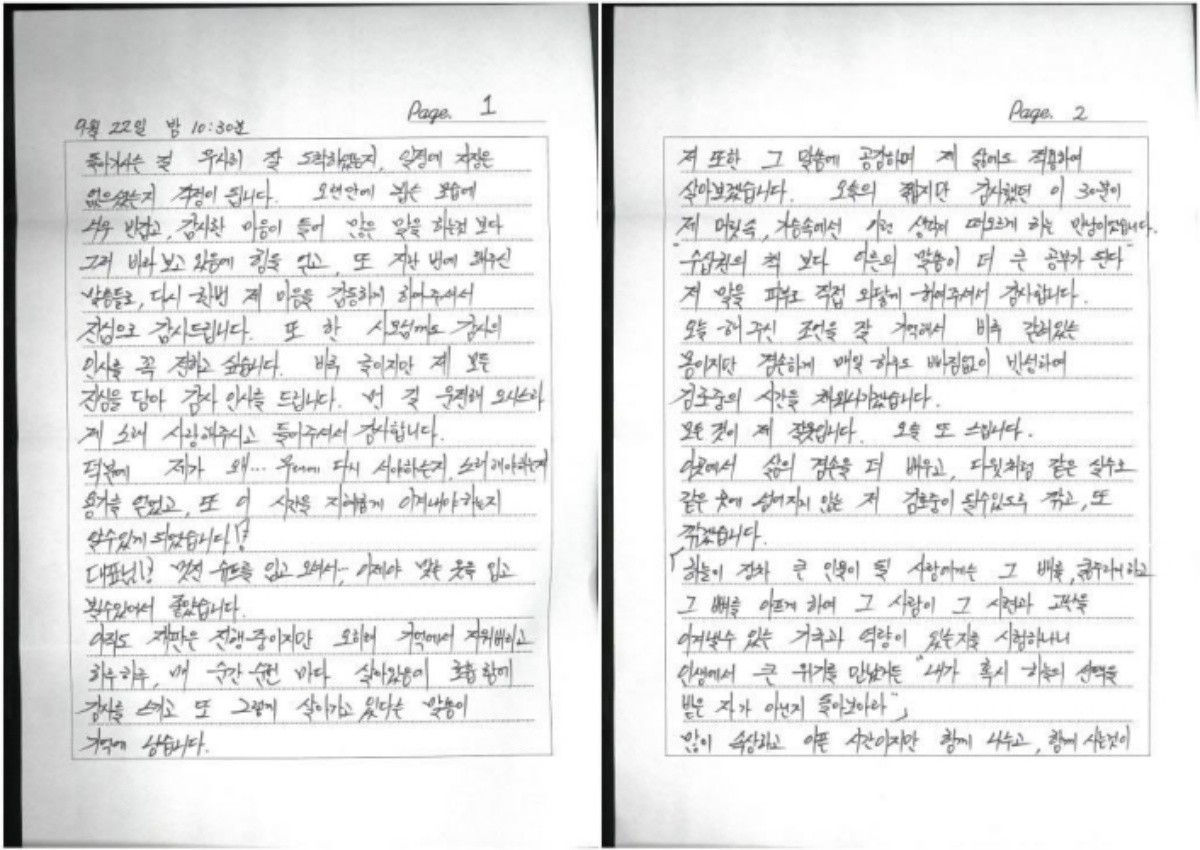 Page. 1
9월 22일 밤 10:30분
돌아가시는 길 무사히 잘 도착하셨는지, 일정에 지장은
없으셨는지 걱정이 됩니다. 오랜만에 뵙는 모습에
너무 반갑고, 감사한 마음이 들어 많은 말을 하는것 보다
그저 바라 보고 있음에 힘을 얻고, 또 지난 번에 해주신
말씀들로, 다시 한번 제 마음을 감동하게 하여주셔서
진심으로 감사드립니다. 또 한 사모님께도 감사의
인사를 꼭 전하고 싶습니다. 비록 글이지만 제 모든
진심을 담아 감사 인사를 드립니다. 먼 길 운전해 오시느라
제 노래 사랑해주시고 들어주셔서 감사합니다.
덕분에 제가 왜... 무대에 다시 서야하는지, 노래해야하는지
용기를 얻었고, 또 이 시간을 지혜롭게 이겨내야 하는지
알수있게 되었습니다!
대표님!! 멋진 슈트를 입고 오셔서... 이제야 맞는 옷을 입고
뵐수있어서 좋았습니다.
아직도 재판은 진행중이지만 오히려 기억에서 지워버리고
하루하루, 매 순간순간 마다 살아있음에 호흡함에
감사를 느끼고 또 그렇게 살아가고 있다는 말씀이
기억에 남습니다.
Page. 2
저 또한 그 말씀에 공감하며 제 삶에도 적용하여
살아보겠습니다. 오늘의 짧지만 감사했던 이 30분이
제 머릿속, 가슴속에선 이런 생각이 떠오르게 하는 만남이었습니다.
"수십권의 책 보다 어른의 말씀이 더 큰 공부가 된다"
저 말을 피부로 직접 와닿게 하여주셔서 감사합니다.
오늘 해 주신 조언을 잘 기억해서 비록 갇혀있는
몸이지만 겸손하게 매일 하루도 빠짐없이 반성하며
김호중의 시간을 채워나가겠습니다.
모든 것이 제 잘못입니다. 오늘 또 느낍니다.
이곳에서 삶의 겸손을 더 배우고, 다윗처럼 같은 실수로
같은 곳에 넘어지지 않는 저 김호중이 될수있도록 깎고, 또
깎겠습니다.
「하늘이 장차 큰 인물이 될 사람에게는 그 배를 굶주리게하고
그 뼈를 아프게 하여 그 사람이 그 시련과 고난을
이겨낼수 있는 기국과 역량이 있는지를 시험하나니
인생에서 큰 위기를 만났거든 "내가 혹시 하늘의 선택을
받은 자가 아닌지 돌아보아라"」
많이 속상하고 아픈 시간이지만 함께 나누고, 함께 사는것이